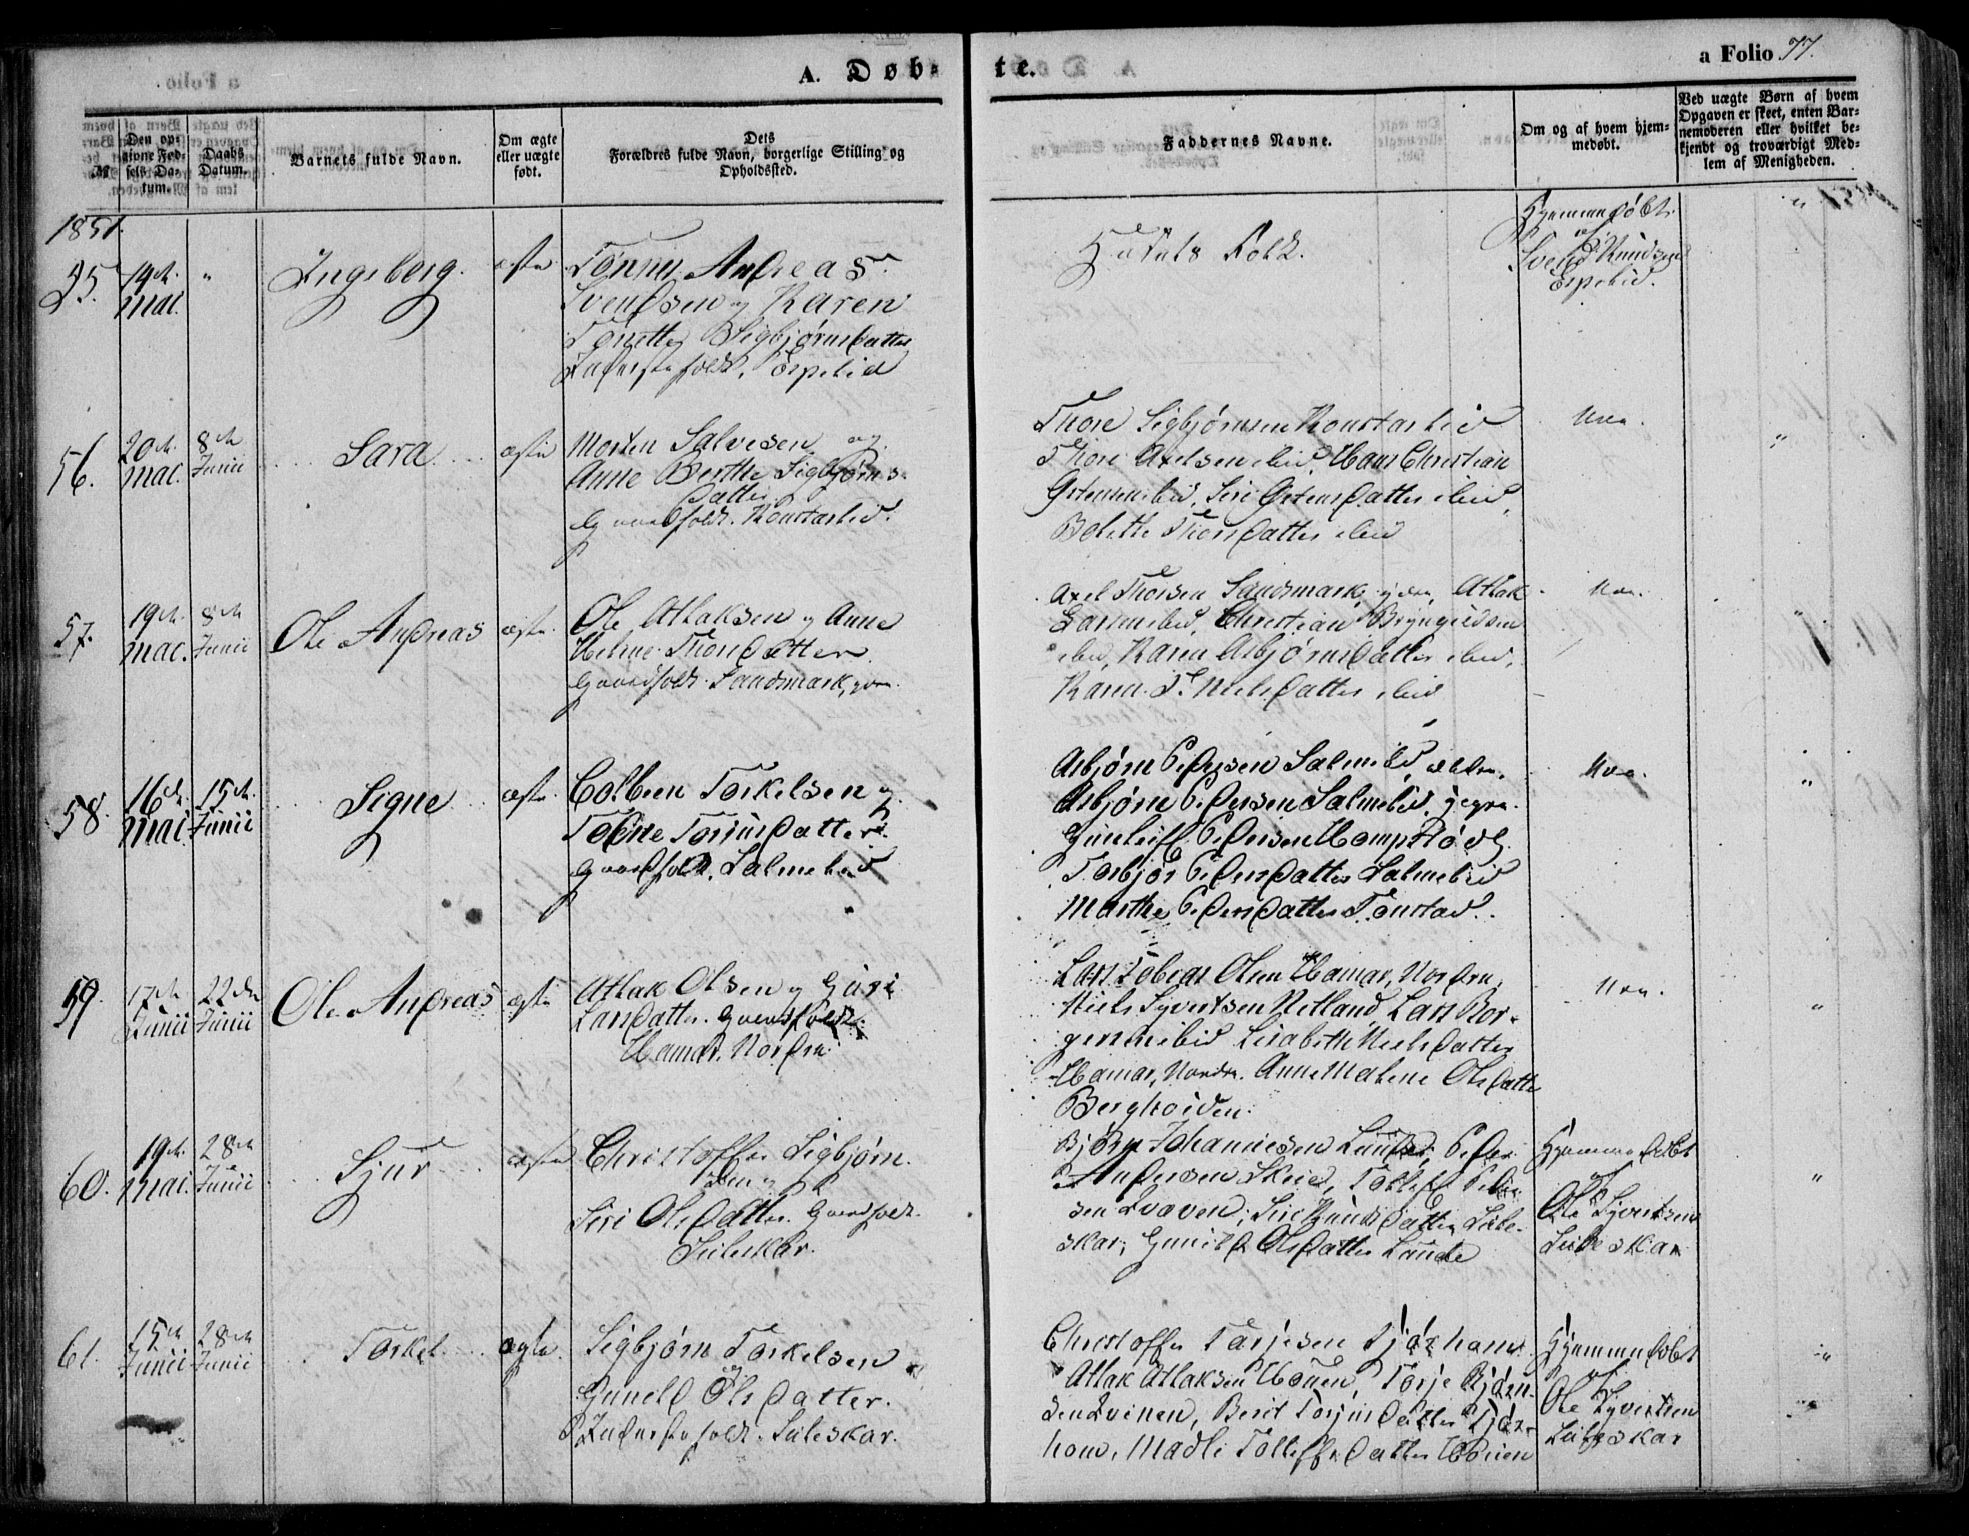 A. Døb-
te.
a Folio 77.
№
Den op-
givne Fød-
sels Da-
tum.
Daabs
Datum.
Barnets fulde Navn.
Om ægte
eller uægte
født.
Dets
Forældres fulde Navn, borgerlige Stilling og
Opholdssted.
Faddernes Navne.
Om og af hvem hjem-
medøbt.
Ved uægte Børn af hvem
Opgaven er skeet, enten Bar-
nemoderen eller hvilket be-
kjendt og troværdigt Med-
lem af Menigheden.
1851.
19de
Mai.
"
Ingeborg.
ægte
Tønnes Andreas
Svendsen og Karen
Tonette Sigbjørnsdatter
Inderstefolk, Espetvid
Husets Folk.
Hjemmedøbt
af
Svend Knudsen
"
56.
20de
Mai.
8de
Junii
Sara
ægte
Morten Salvesen og
Anne Berthe Sigbjørns-
datter
Gaardfolk. Konstaslid.
Thore Sigbjørnsen Konstaslid
Thore Axelsen ibid, Hans Christian
Ostensen ibid, Siri Ostensdatter ibid,
Bolette Thorsdatter ibid
"
57.
19de
Mai.
8de
Junii
Ole Andreas
ægte
Ole Atlaksen og Anne
Helene Thorsdatter
Gaardfolk. Sandsmark,
Axel Thorsen Sandsmark, Atlak
Larsen ibid, Christian
ibid, Karen Asbjørnsdatter ibid,
Karen Nielsdatter ibid
"
58.
16de
Mai.
15de
Junii
Signe
ægte
Colbeen Torkelsen og
Tobine Torjusdatter
Gaardfolk. Salmelid
Asbjørn Pedersen Salmelid, ældre.
Asbjørn Pedersen Salmelid, yngre.
Gunleif Pedersen Hompstød
Torbjør Pedersdatter Salmelid
Marthe Pedersdatter Tonstad.
"
59.
17de
Junii
22de
Junii
Ole Andreas
ægte
Atlak Olsen og Guri
Larsdatter. Gaardfolk.
Hamar, Nordre
Lars Tobias Olsen Hamar, Nordre,
Niels Syvertsen Netland, Lars Bor-
gersen ibid Lisabeth Nielsdatter
Hamar, Nordre. Anne Malene Olsdatter
"
60.
19de
Mai.
28de
Junii
Sjur
ægte
Christoffer Sigbjørn-
sen og
Siri Olsdatter. Gaardfolk.
Suleskar.
Bjørn Johannesen Lunde, Peder
Andersen Skeie, Tollef Peder-
sen Qvæven, Siri Knudsdatter Sule-
skar, Gunild Olsdatter Lunde
Hjemmedøbt
af
Ole Syvertsen
Suleskar
"
61.
15de
Junii
28de
Junii
Torkel
ægte
Sigbjørn Torkelsen
og
Gunild Olsdatter.
Inderstefolk. Suleskar.
Christoffer Tarjesen Tjørhom
Atlak Atlaksen Honen, Torje Bjørn-
sen Qvinen, Berit Torjusdatter Tjør-
hom, Madli Tollefsdatter Honen
Hjemmedøbt
af
Ole Syvertsen
Suleskar
"